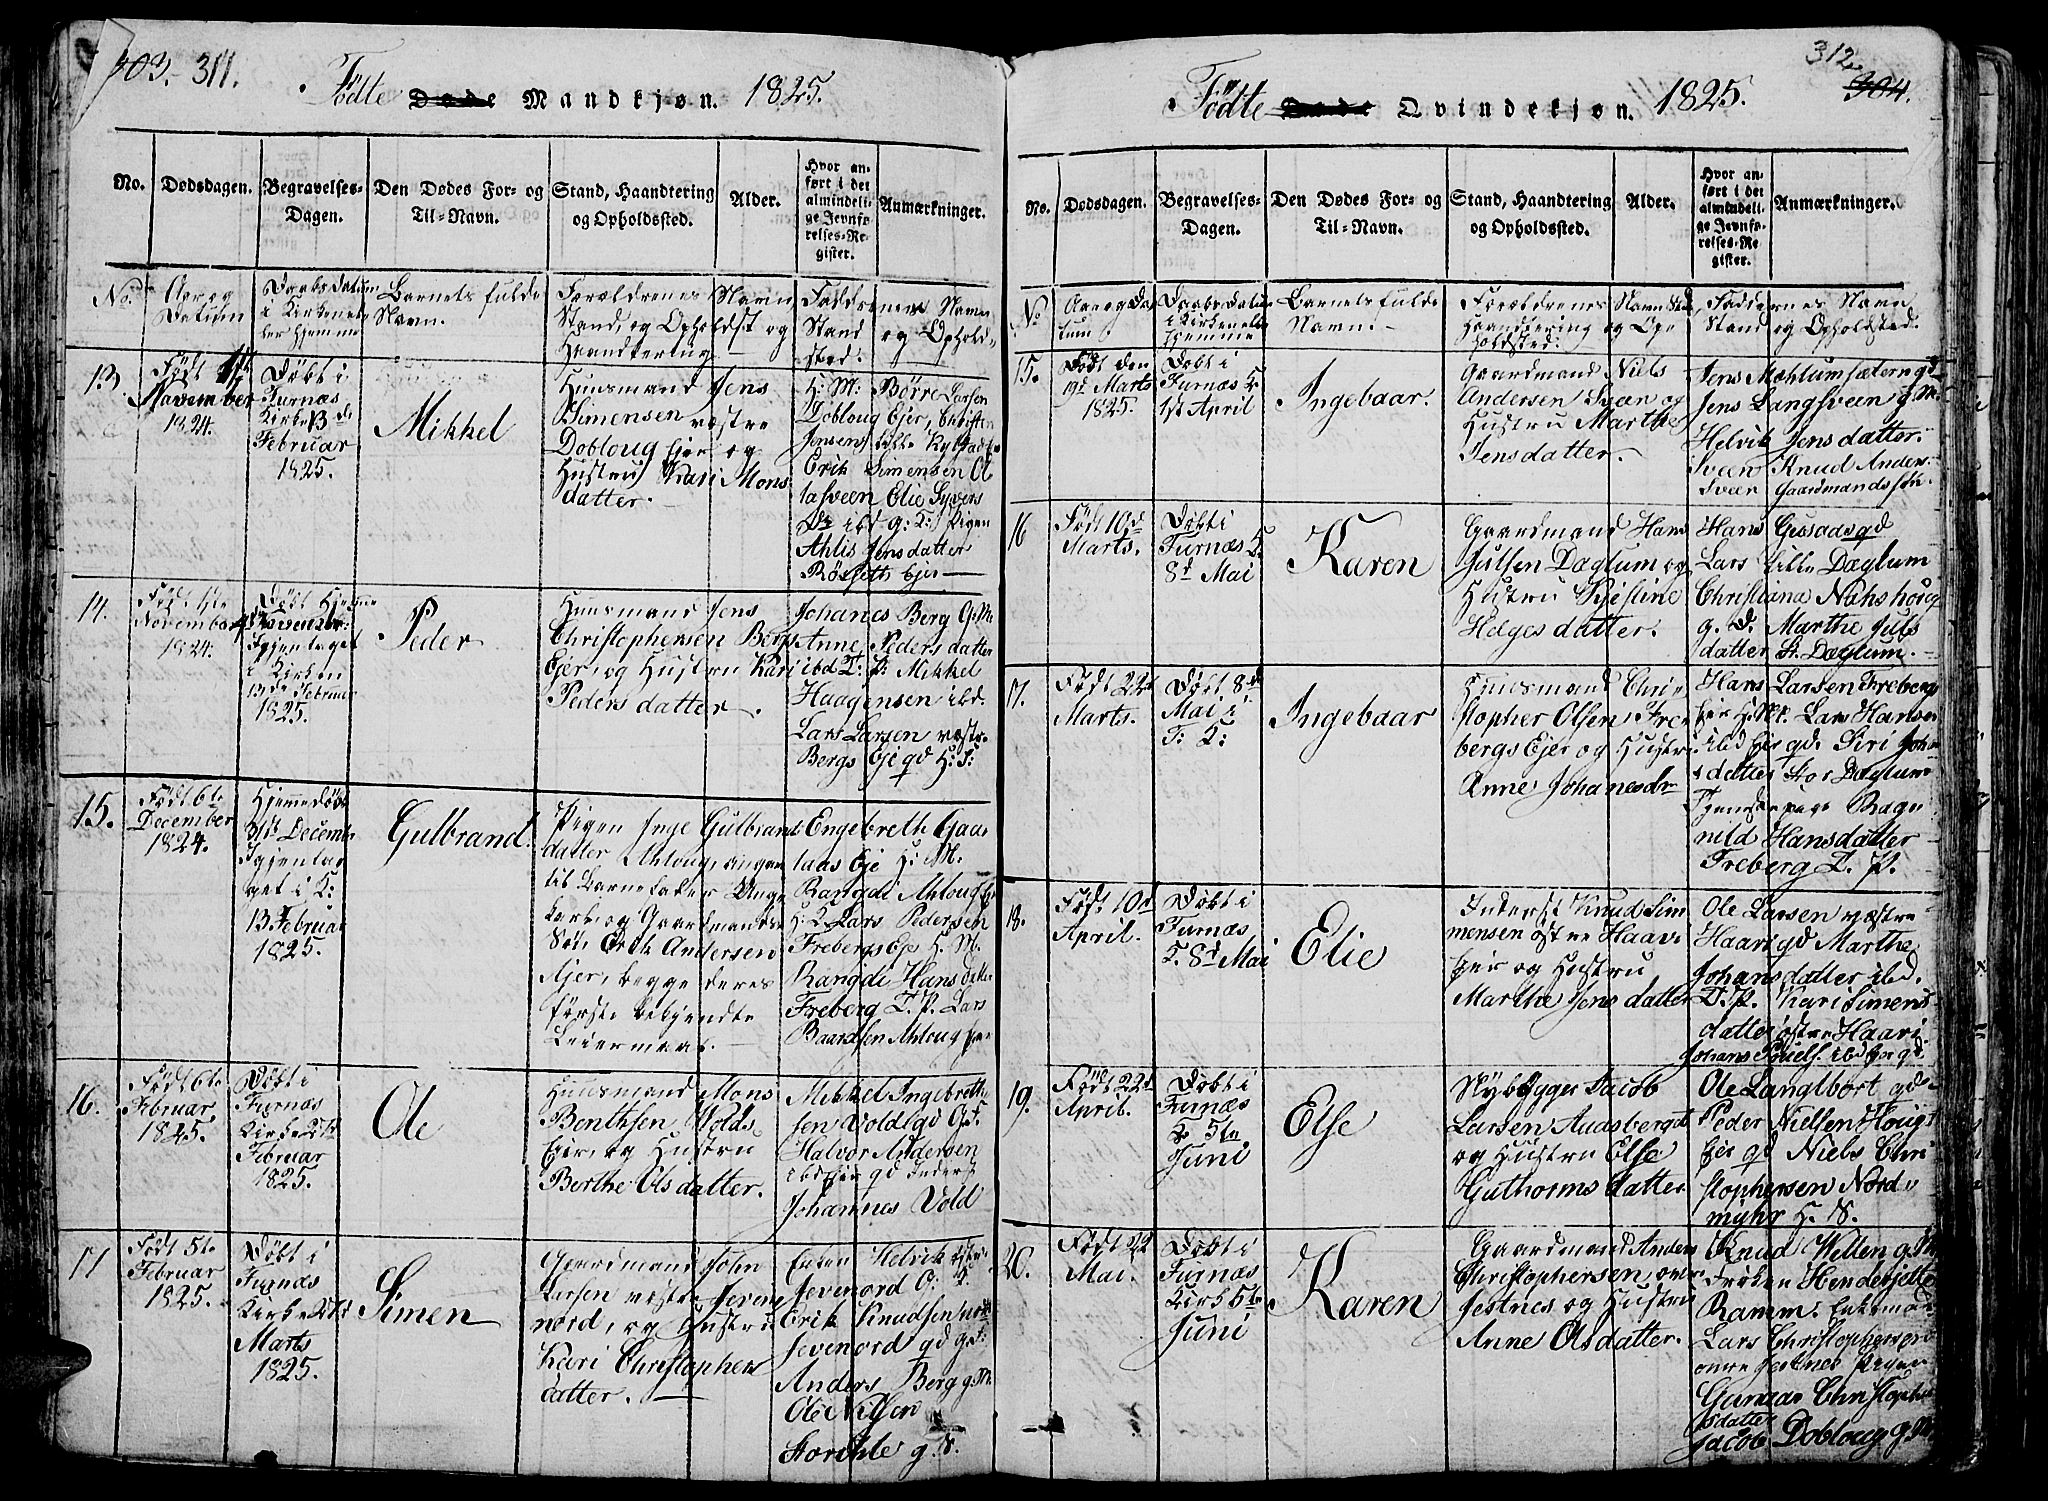 303. 311.
Födte Døde Mandkjøn. 1825.
No.
Dødsdagen.
Begravelses-
Dagen.
Den Dødes For- og
Til-Navn.
Stand, Haandtering
og Opholdssted.
Alder.
Hvor an-
ført i det
almindeli-
ge Jevnfø-
relses-Re-
gister.
Anmærkninger.
No.
Aar og
Datum
Daabsdatum
i Kirken el-
ler hjemme
Barnets fulde
Navn.
Forældrenes Navn
Stand, og Opholdst og
Haandtering
Faddernes Navn
Stand og Ophold-
sted.
13.
Födt
November
1824.
Döbt i
Furnæs
Kirke 13de
Februar
1825.
Mikkel
Huusmand Jens
Simensen vestre
Doblong Ejer og
Hustru Kari Mons
datter.
H: M: Börre Larsen
Doblong Ejer,
Erik Simensen
Elie Syvers
Dr ibd g: K: Pigen
Ahlis Jensdatter
Ejer
14.
Födt 1ste
November
1824.
Döbt hjemme
Igjentaget
i Kirken
13de Februar
1825.
Peder
Huusmand Jens
Christophersen Bergs
Ejer, og Hustru Kari
Peders datter.
Johanes Berg G: M:
Anne Peders datter
ibd T: P: Mikkel
Haagensen ibd.
Lars Larsen vestre
Bergs Eje gd H: S:
15.
Födt 6te
December
1824.
Hjemmedöbt
31te Decemb:
Igjenta-
get i K:
13 Februar
1825.
Gulbrand.
Pigen Inge Gulbrands
datter Ahloug, angav
til Barnefader Unge
karl og Gaardmands
Sön Erik Andersen
Ajer, begge deres
förste bekjendte
Leiermaal.
Engebreth Gaar
laas Eje H: M.
Rangdi Ahloug
H: K: Lars Pedersen
Frebergs Eje H. M.
Rangdi Hans datter
Freberg T. P. Lars
Baardsen Ahloug
16.
Födt 6te
Februar
1825.
Döbt i
Furnæs
Kirke
Februar
1825.
Ole
Huusmand Mons
Benthsen Volds
Ejer, og Hustru
Berthe Olsdatter.
Mikkel Ingebreth
sen Vold gd
Halvor Andersen
ibd Ejer gd Inderst
Johannes Vold
17
Födt 5te
Februar
1825.
Döbt i
Furnæs
Kirke
Marts
1825.
Simen
Gaardmand John
Larsen vestre Jeven
nord, og Hustru
Kari Christophers
datter.
Enken Helvik
Jevenord G: K:
Erik Knudsen
Jevenord gd
Anders Berg g: M
Ole Nilsen
g. S.
312.
304.
Födte Døde Qvindekjøn. 1825.
No.
Dødsdagen.
Begravelses-
Dagen.
Den Dødes For- og
Til-Navn.
Stand, Haandtering
og Opholdssted.
Alder.
Hvor an-
ført i det
almindeli-
ge Jevnfø-
relses-Re-
gister.
Anmærkninger.
No
Aar og Da-
tum
Daabs Datum
i Kirken eller
hjemme
Barnets fulde
Navn.
Forældrenes Navn Stand,
Haandtering og Op-
holdsted.
Faddernes Navn
Stand og Opholdsted.
15.
Födt den
19d Marts
1825.
Döbt i
Furnæs K.
1st April
Ingebaar.
Gaardmand Niels
Andersen Sveen og
Hustru Marthe
Jensdatter.
Jens gd
Jens Langsveen g. M.
Helvik Jensdatter.
Sveen Knud Anders.
Sveen Gaardmandssön.
16
Födt 10d
Marts.
Döbt i
Furnæs K.
8d Mai
Karen
Gaardmand Hans
Julsen Dæglum og
Hustru Kjestine
Helgesdatter.
Hans gd
Lars Lille Dæglum
Christiana Nashoug
g. D. Marthe Juls
datter St. Dæglum.
17.
Födt 22d
Marts.
Döbt 8d
Mai i
F: K:
Ingebaar
Huusmand Chri-
stopher Olsen Fre-
bergs Ejer og Hustru
Anne Johanesdr
Hans Larsen Frebergs
Ejer H: M. Lars Hansen
ibd Ejer gd. Siri Johan
sdatter Stor Dæglum
Tjenestepige Ragn
nild Hansdatter
Freberg T. P.
18.
Födt 10d
April.
Döbt i
Furnæs
K. 8d Mai
Elie
Inderst Knud Sim
mensen östre Haavi
Ejer og Hustru
Marthe Jens datter
Ole Larsen vestre
Haavi gd Marthe
Johansdatter ibd.
T. P. Kari Simens
datter östre Haavi.
Johans ibd Ejer gd.
19.
Födt 22d
April.
Döbt i
Furnæs
K 5te
Juni
Else
Nybygger Jacob
Larsen Aasberget
og Hustru Else
Guthormsdatter
Ole gd
Peder Nielsen Hougs
Ejer gd Niels Chri
stophersen Nord-
myhr H. S.
20.
Födt 22
Mai.
Döbt i
Furnæs
Kirk 5te
Juni
Karen
Gaardmand Anders
Christophersen, övre
Jestnes og Hustru
Anne Olsdatter.
Knud Wellen g. M
Fröken Henderjette
Ramm. Enkemand
Lars Christophersen
övre Jestnes Pigen
Christophers
datter
Jacob Doblong g. M.